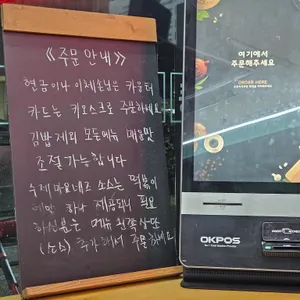 《주문 안내》
현금이나 이체손님은 카운터
카드는 키오스크로 주문하세요
김밥 제외 모든메뉴 매운맛
조절 가능합니다
수제 마요네즈 소스는 떡볶이
에만 하나 제공되니 필요
하신분은 메뉴 왼쪽 상단
(소스) 추가해서 주문하세요
여기에서
주문해주세요
ORDER HERE
OKPOS